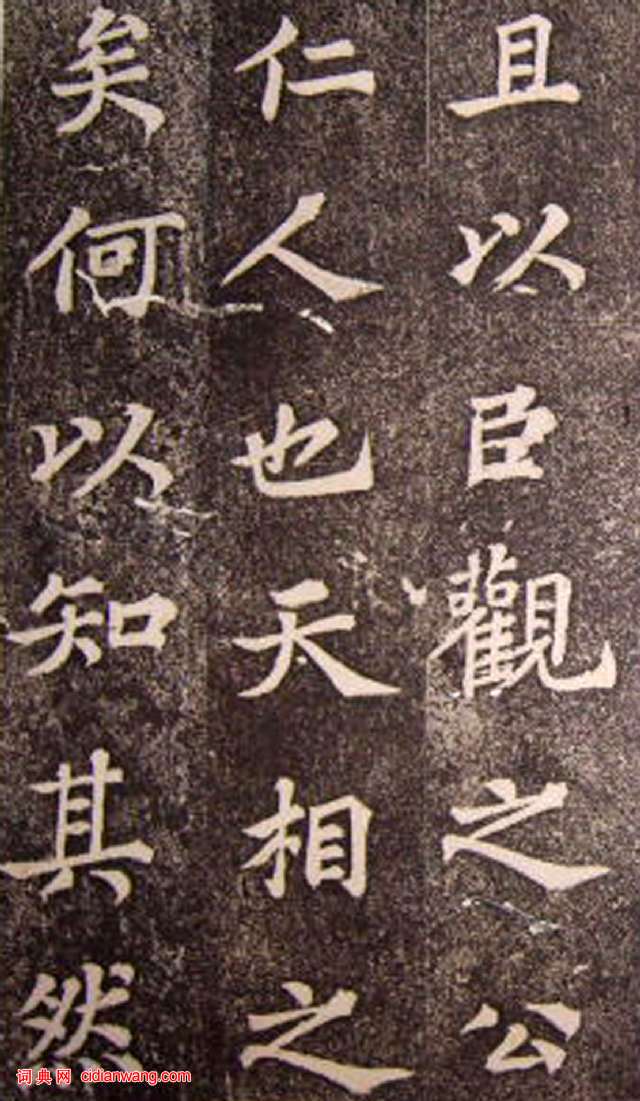 且以臣觀之公
仁人也天相之
矣何以知其然
词典网 cidianwang.com